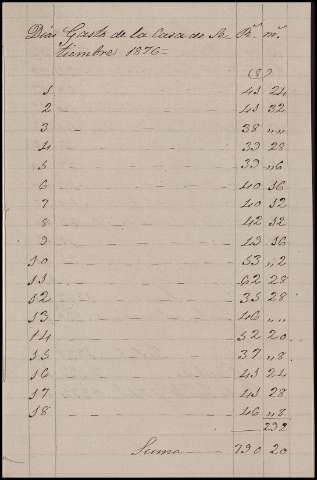 Dias Gasto de la Casa de Se Rs. ms.
tiembre 1876=
(8)
1 — — — 41 24
2 — — — 41 32
3 — — — 38 „„
4 — — — 39 28
5 — — — 39 „6
6 — — — 40 16
7 — — — 40 12
8 — — — 42 12
9 — — — 49 16
10 — — — 53 „2
11 — — — 62 28
12 — — — 35 28
13 — — — 46 „„
14 — — — 52 20
15 — — — 37 „8
16 — — — 41 24
17 — — — 41 28
18 — — — 46 „8
292
Suma — 790 20